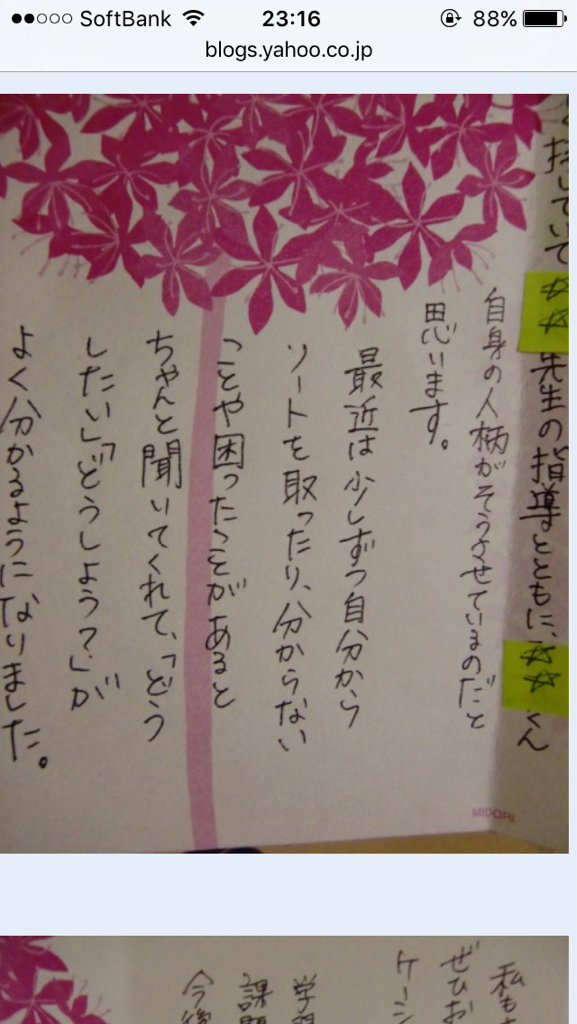 SoftBank 23:16 88%
blogs.yahoo.co.jp
持していて
先生の指導とともに、 くん
自身の人柄がそうさせているのだと
思います。
最近は少しずつ自分から
ソートを取ったり、分からない
ことや困ったことがあると
ちゃんと聞いてくれて、「どう
したい」「どうしよう?」が
よく分かるようになりました。
MIDORI
私も
ぜひお
ケーシ
学習
課題
今後